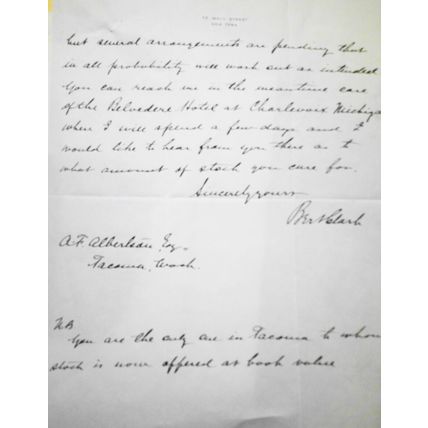 72 WALL STREET
NEW YORK
but several arrangements are pending that
in all probability will work out as intended
You can reach me in the meantime care
of the Belvedere Hotel at Charlevoix Michiga
where I will spend a few days and I
would like to hear from you there as to
what amount of stock you care for.
Sincerely yours
Clark
A F Albertson, Esq.
Tacoma, Wash.
N.B
You are the only one in Tacoma to whom
stock is now offered at book value